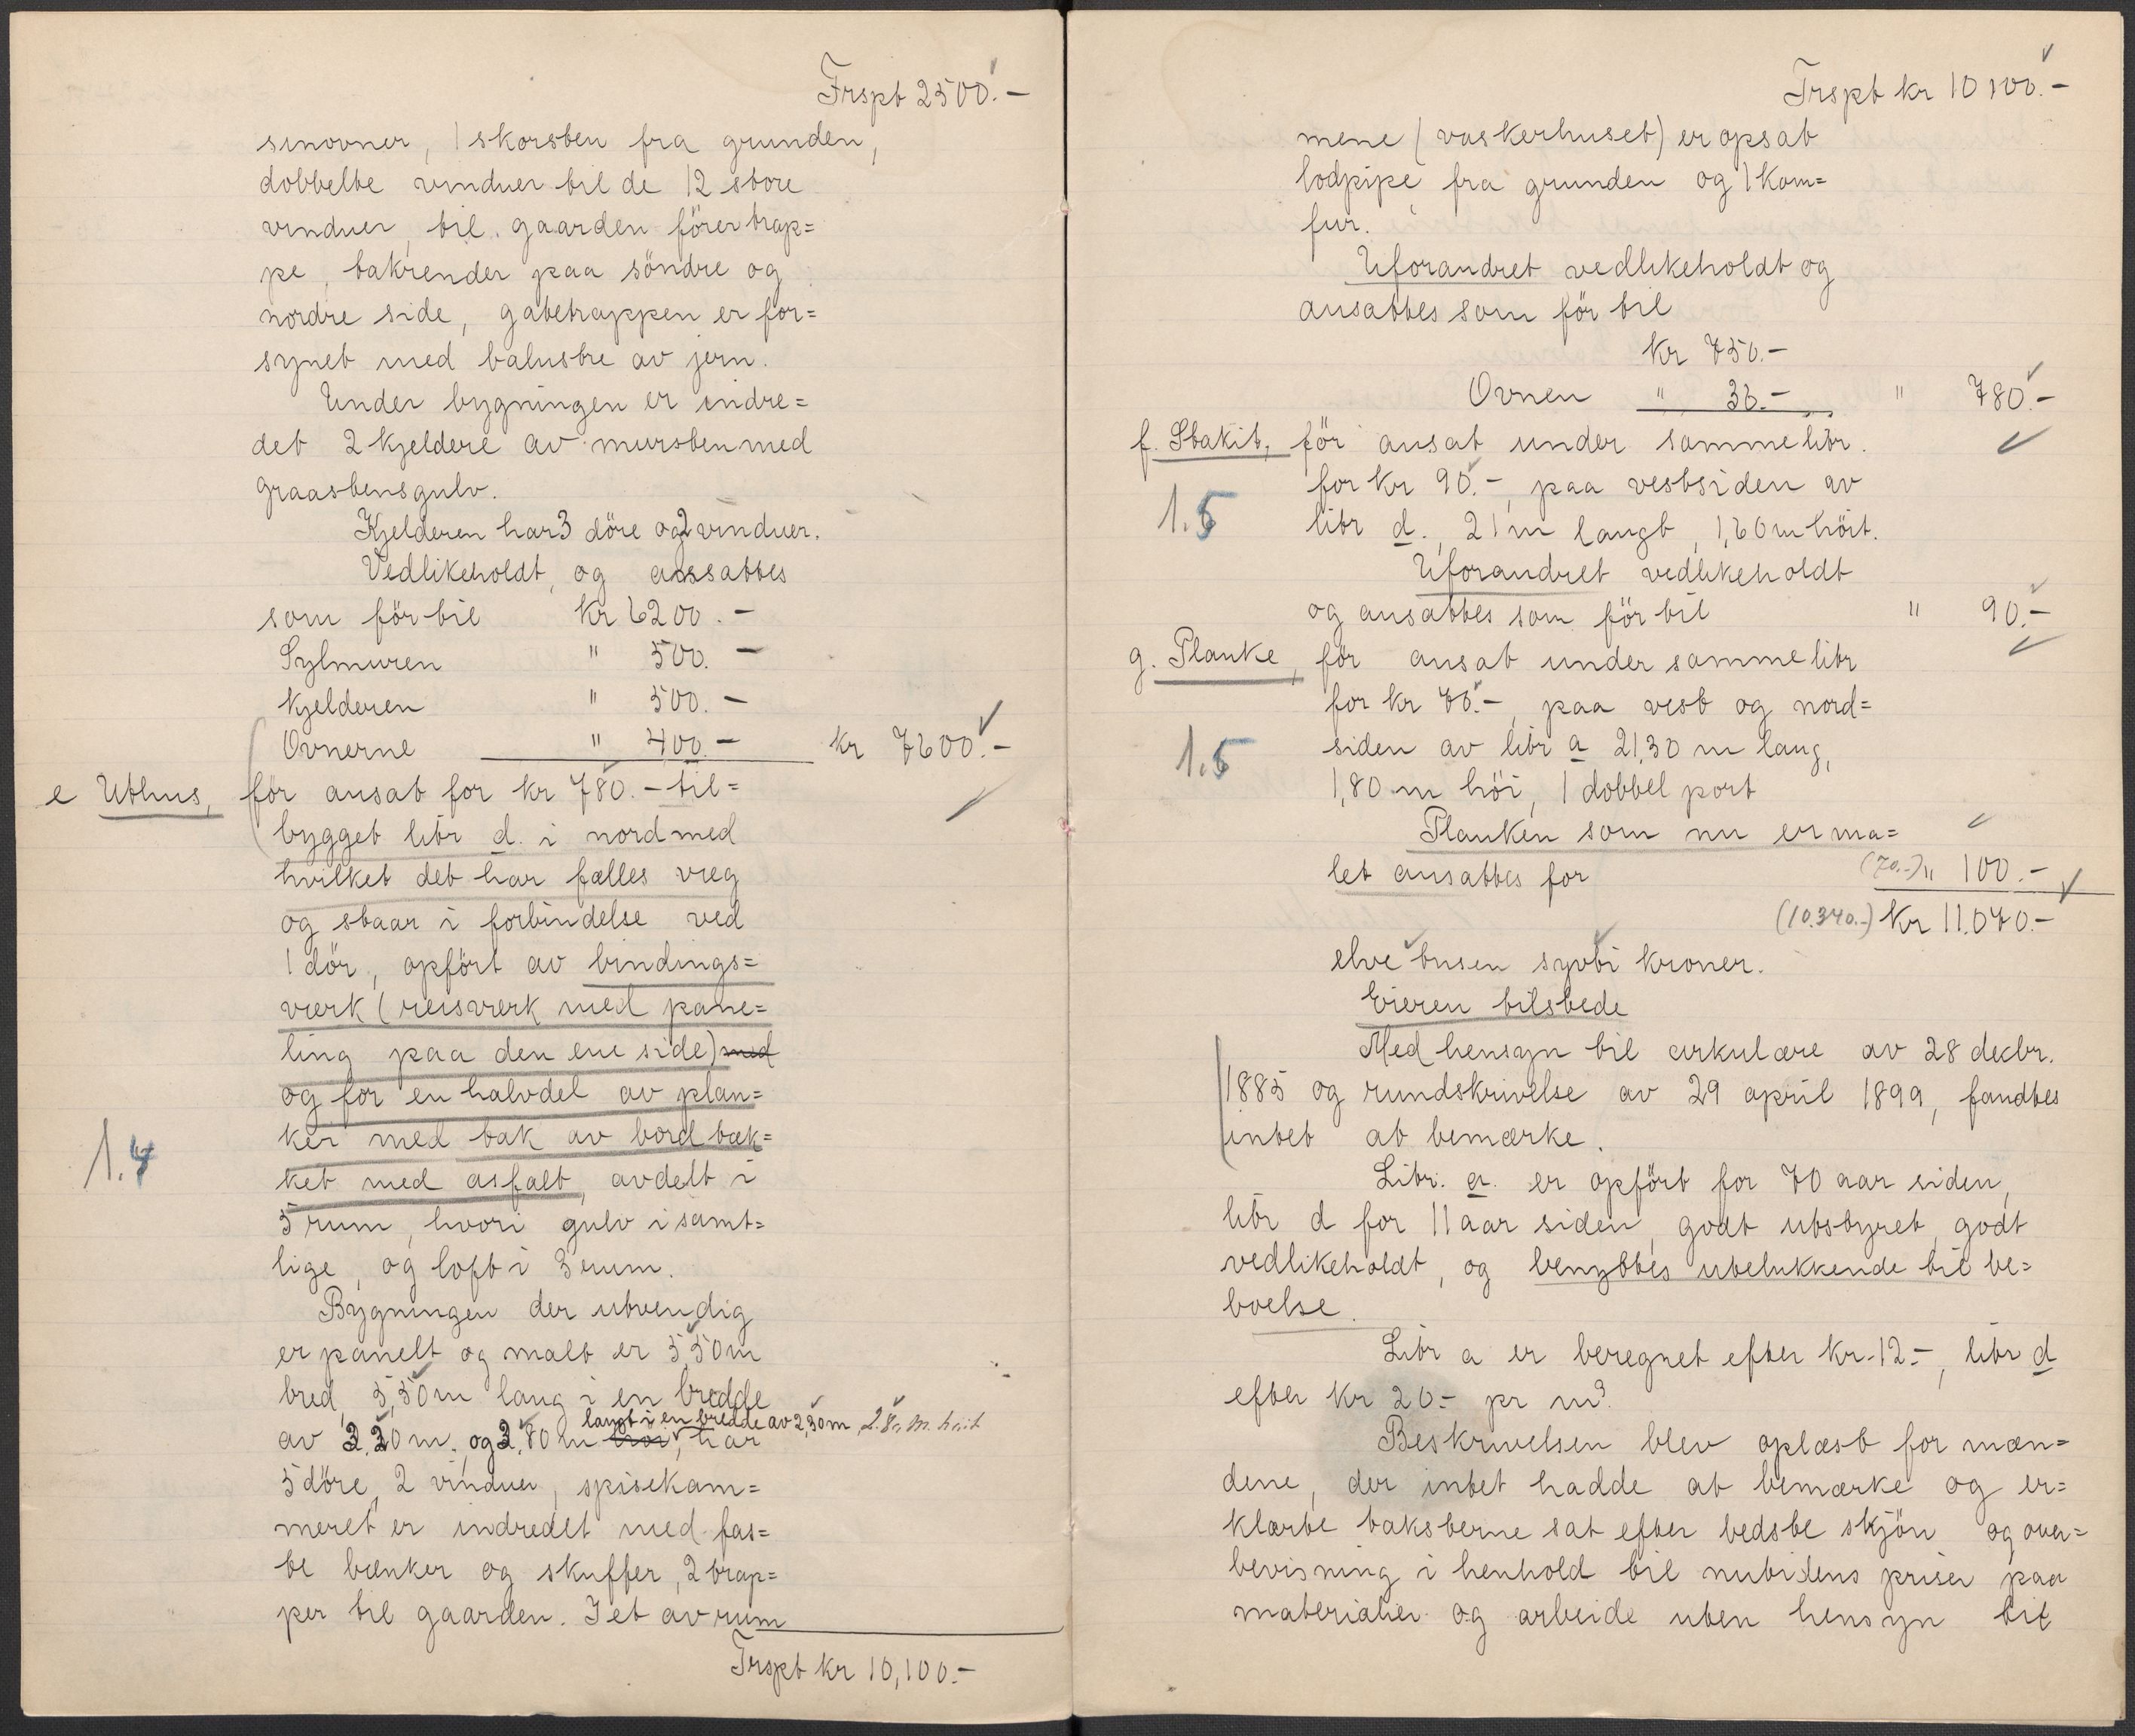 Trspt 2500.-
sinovner, 1 skorsten fra grunden,
dobbelte vinduer til de 12 store
vinduer, til gaarden fører trap=
pe, takrender paa söndre og
nordre side, gatetrappen er for=
synet med balustre av jern.
Under bygningen er indre=
det 2 kjeldere av mursten med
graastensgulv.
Kjelderen har 3 döre og 2 vinduer.
Vedlikeholdt, og ansættes
som för til kr 6200.-
Sylmuren " 500.-
kjelderen " 500.-
Ovnerne " 400.- kr 7600.-
e Uthus, för ansat for kr 780.- til=
bygget litr d. i nord med
hvilket det har fælles væg
og staar i forbindelse ved
1 dör, opfört av bindings=
værk (reisværk med pane=
ling paa den ene side) med
og for en halvdel av plan=
ker med tak av bord tæk=
1.4
ket med asfalt, avdelt i
5 rum, hvori gulv i samt=
lige, og loft i 3 rum.
Bygningen der utvendig
er panelt og malt er 5,50 m
bred, 5,50 m lang i en bredde
langt i en bredde av 2,30 m, 2.80 m. höit
av 3,20 m. og 3,80 m, har
5 döre, 2 vinduer, spisekam=
meret er indredet med fas=
te bænker og skuffer, 2 trap=
per til gaarden. I et av rum
Trspt kr 10,100.-
Trspt kr 10100.-
mene (vaskerhuset) er opsat
lodpipe fra grunden og 1 kom=
fur.
Uforandret vedlikeholdt og
ansættes som för til
kr 750.-
Ovnen " 30.- " 780.-
f. Stakit, för ansat under samme litr.
for kr 90.-, paa vestsiden av
1.5
litr d., 21 m langt, 1,60 m höit.
Uforandret vedlikeholdt
og ansættes som för til " 90.-
g. Planke, för ansat under samme litr
for kr 70.-, paa vest og nord=
1.5
siden av litr a 21,30 m lang,
1,80 m höi, 1 dobbel port
Planken som nu er ma=
let ansættes for (70.-) " 100.-
(10.340.-) kr 11.070.-
elve tusen sytti kroner.
Eieren tilstede
Med hensyn til cirkulære av 28 decbr.
1885 og rundskrivelse av 29 april 1899, fandtes
intet at bemærke.
Litr. a. er opfört for 70 aar siden,
litr d for 11 aar siden, godt utstyret, godt
vedlikeholdt, og benyttes utelukkende til be=
boelse.
Litr a er beregnet efter kr. 12.-, litr d
efter kr 20.- pr m².
Beskrivelsen blev oplæst for mæn=
dene, der intet hadde at bemærke og er=
klærte taksterne sat efter bedste skjön og over=
bevisning i henhold til nutidens priser paa
materialier og arbeide uten hensyn til